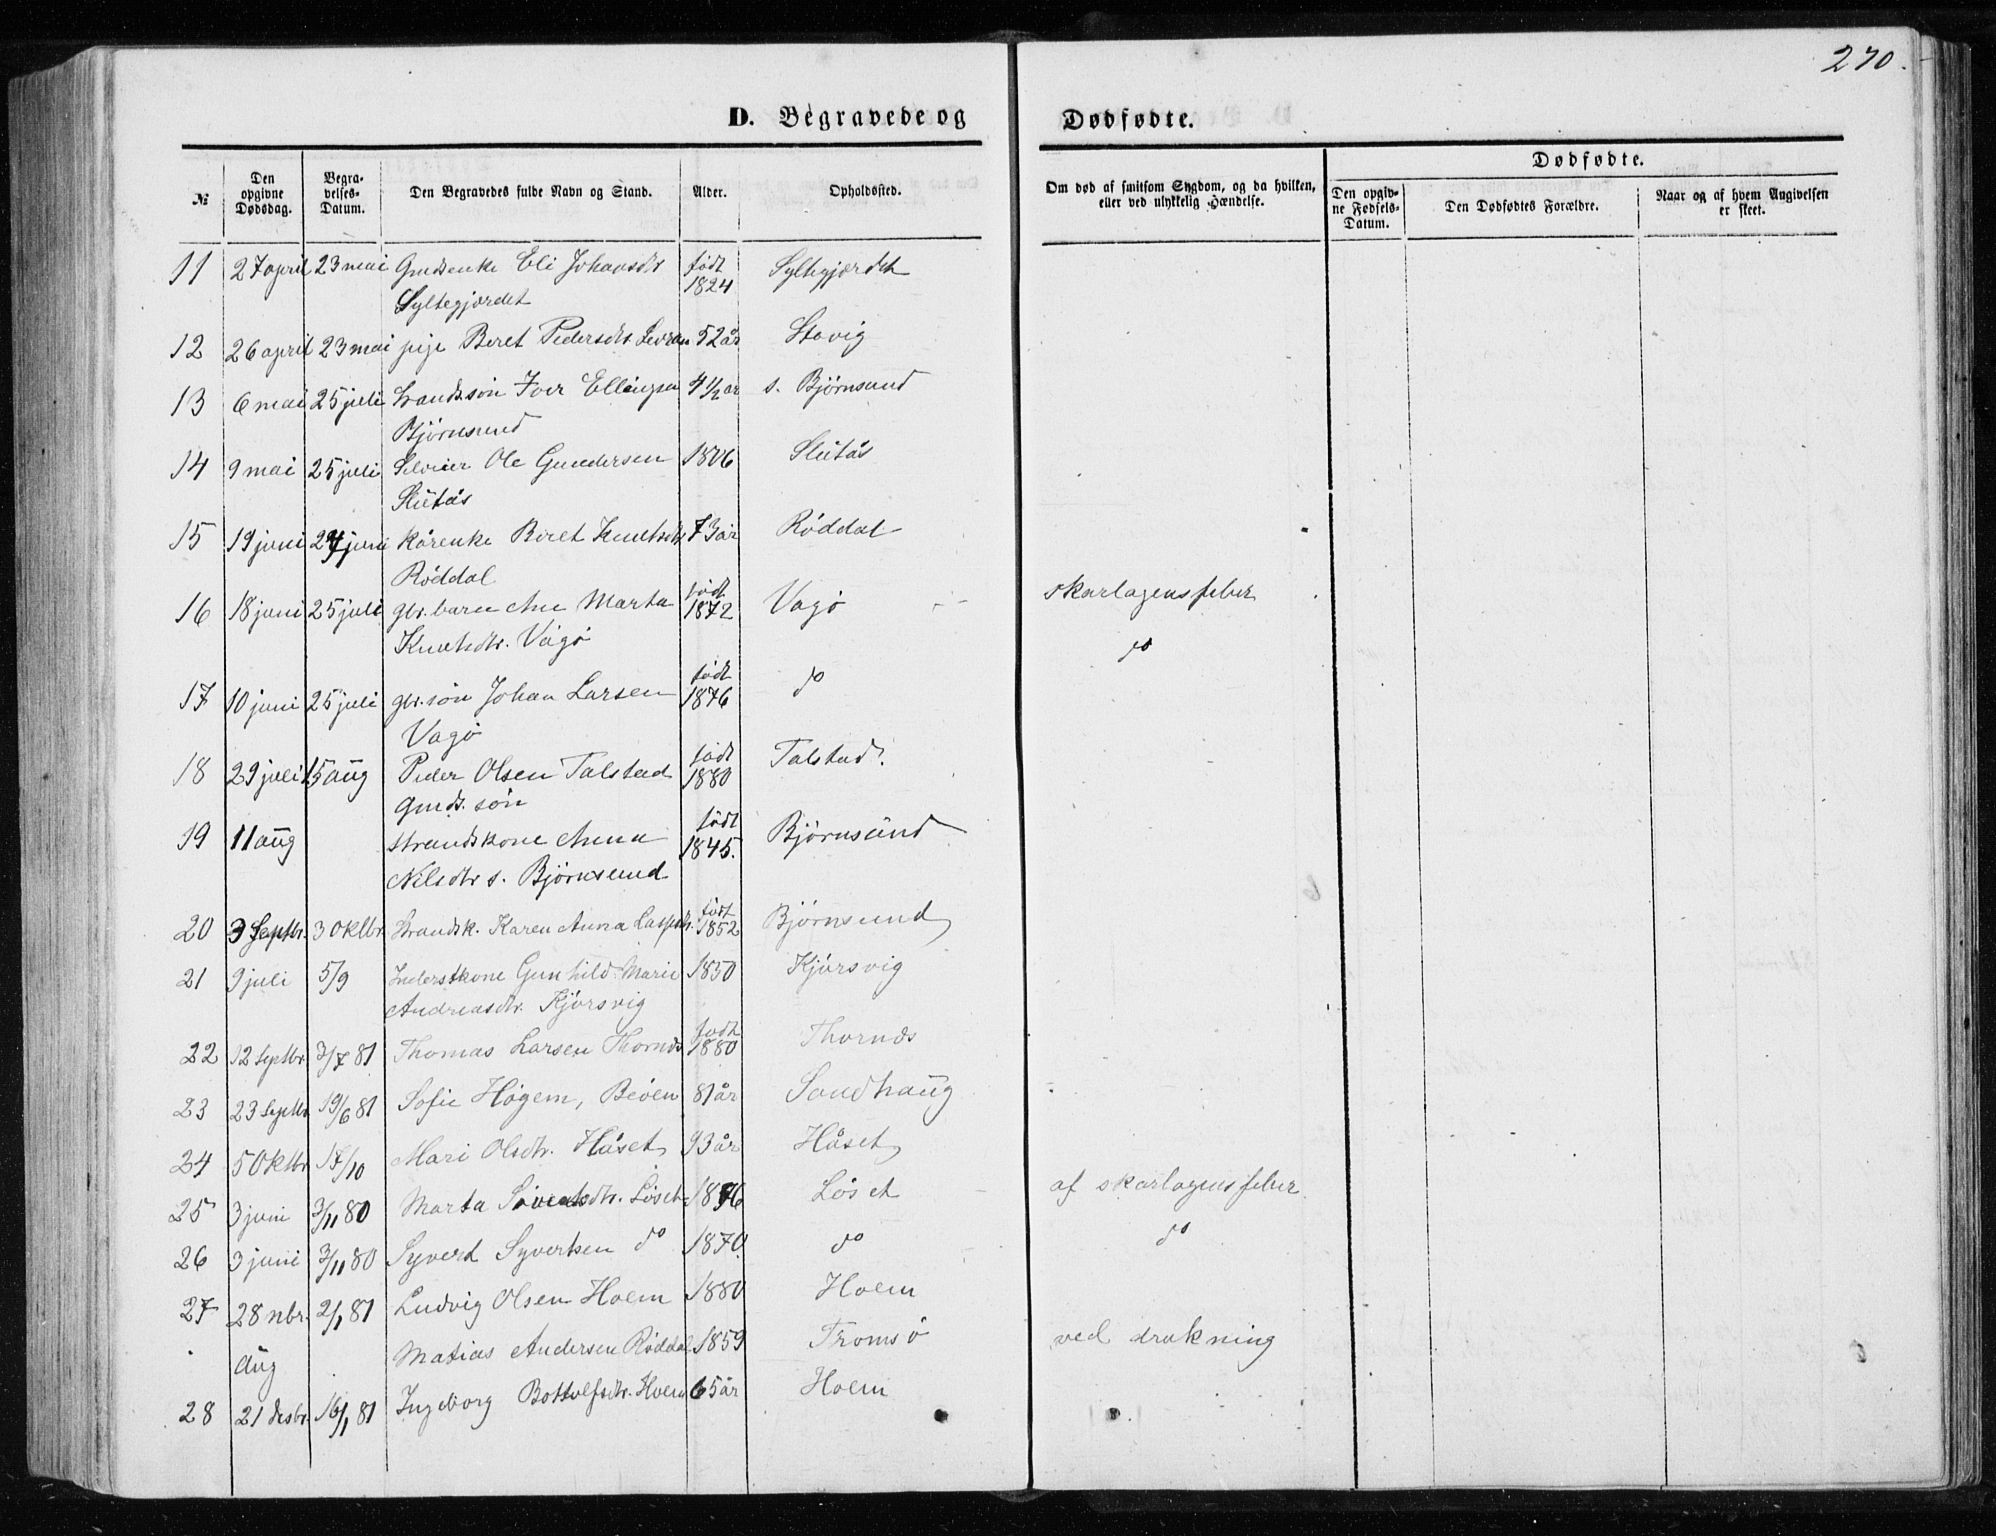 270.
D. Begravede og Dødfødte.
№ | Den opgivne Dødsdag. | Begravelses-Datum. | Den Begravedes fulde Navn og Stand. | Alder. | Opholdssted. | Om død af smitsom Sygdom, og da hvilken, eller ved ulykkelig Hændelse. | Dødfødte. | Den opgivne Fødsels-Datum. | Den Dødfødtes Forældre. | Naar og af hvem Angivelsen er skeet.
11 27 april 23 mai Gmdsenke Eli Johansdtr født 1824 Syltegjærdet
Syltegjærdet
12 26 april 23 mai pige Beret Pedersdtr 52 år Stavig
13 6 mai 25 juli Strands.søn Iver Ellingsen 4 1/2 ar s. Bjørnsund
Bjørnsund
14 9 mai 25 juli Ole Gundersen 1806 Slutås
Slutås
15 19 juni 24 juni kårenke Beret Knutsdtr 73 år Röddal
Röddal
16 18 juni 25 juli gbr. barn Ane Marta født 1872 Vagö skarlagensfeber
Knutsdtr. Vågö
17 10 juni 25 juli gbr. søn Johan Larsen født 1876 do do
Vagö
18 29 juli 15 aug Peder Olsen Talstad født 1880 Talstad.
gmds. søn
19 11 aug strandskone Anna født 1845. Bjørnsund
Nilsdtr s. Bjørnsund
20 3 Septbr. 3 Oktbr. Strandsk. Karen Anna født 1852 Bjørnsund
21 9 juli 5/9 Inderstkone Gunhild Marie 1850 Kjörsvig
Andreasdtr. Kjörsvig
22 12 Septbr 3/7 81 Thomas Larsen Thornæs født 1880 Thornæs
23 23 Septbr 19/6 81 Sofie Högem, Beöen 81 år Sandhaug
24 5 Oktbr 17/10 Mari Olsdtr. Håset 93 år Håset
25 3 juni 3/11 80 Marta Sivertsdtr. Löset 1876 Löset af skarlagensfeber
26 3 juni 3/11 80 Syverd Syvertsen do 1870 do do
27 28 nbr. 2/1 81 Ludvig Olsen Hoem 1880 Hoem
aug Matias Andersen Röddal 1859 Tromsö ved drukning
28 21 desbr 16/1 81 Ingeborg Bottolfsdtr. Hoem 65 år Hoem